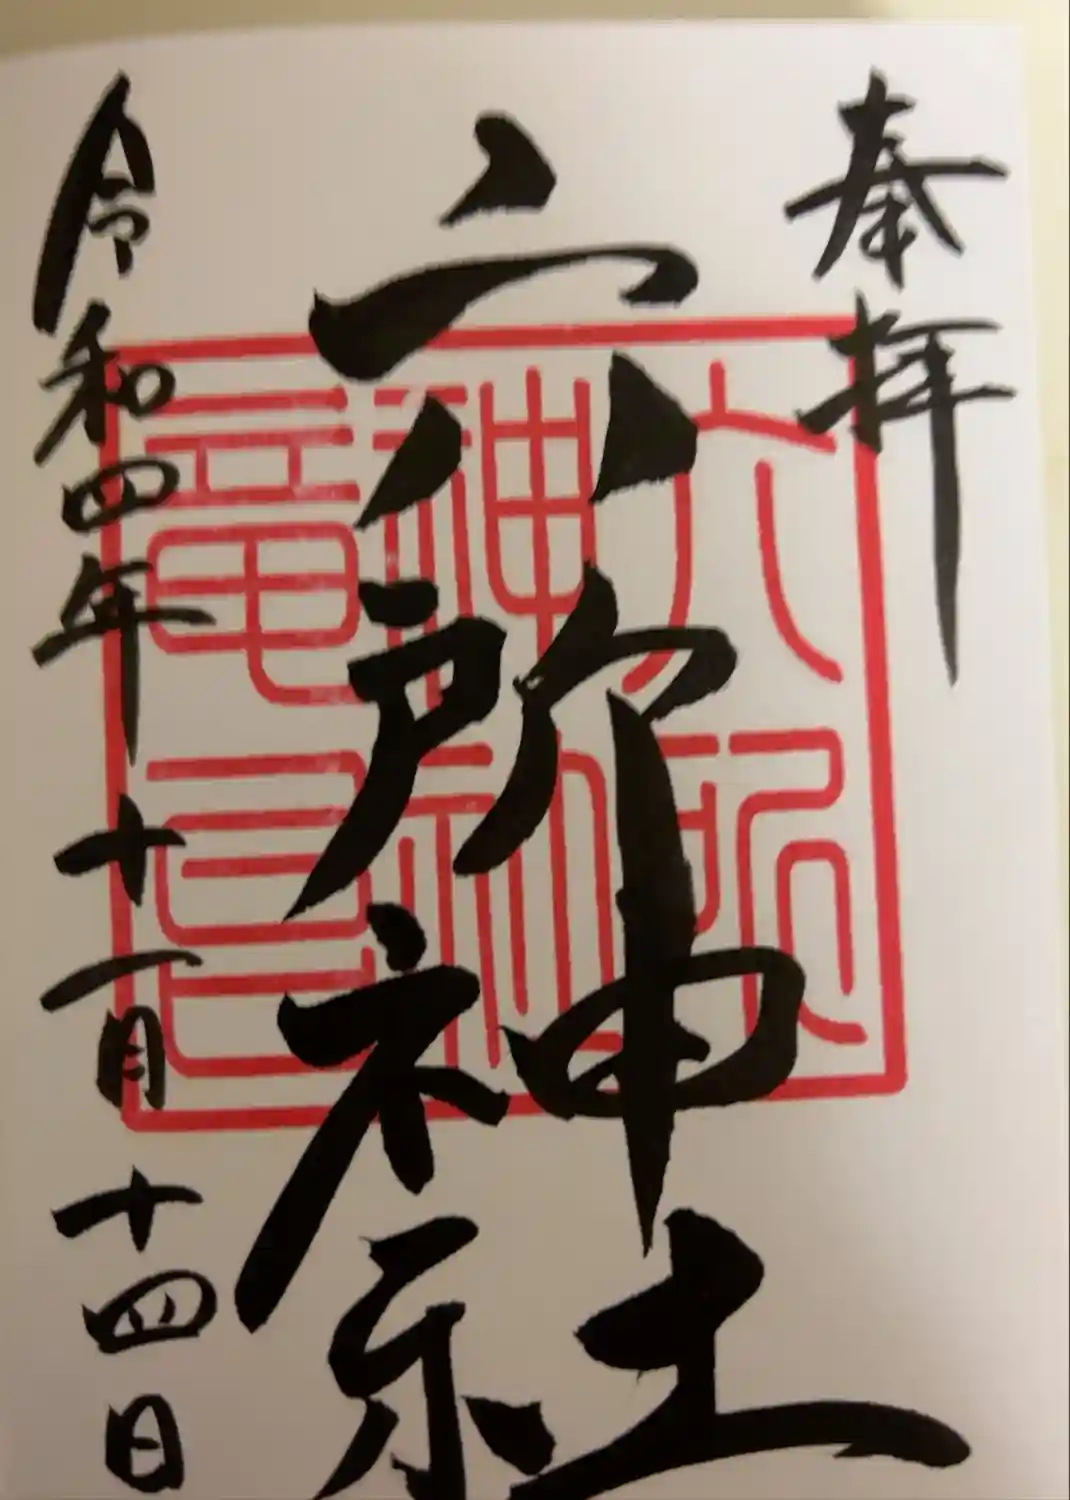 奉拝
六所神社
令和四年十一月十四日
六所
神